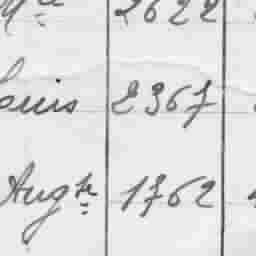 2622
ouis 2367
Augte 1762